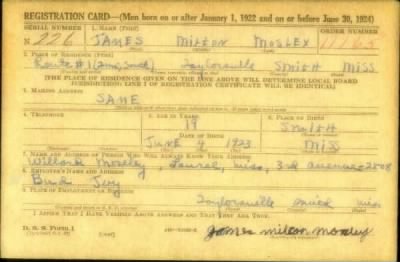 REGISTRATION CARD—(Men born on or after January 1, 1922 and on or before June 30, 1924)
SERIAL NUMBER 1. NAME (Print) ORDER NUMBER
N 226 JAMES MILTON MOSLEY
2. PLACE OF RESIDENCE (Print)
Route #1 Taylorsville SMITH MISS
[THE PLACE OF RESIDENCE GIVEN ON THE LINE ABOVE WILL DETERMINE LOCAL BOARD
JURISDICTION; LINE 2 OF REGISTRATION CERTIFICATE WILL BE IDENTICAL]
3. MAILING ADDRESS
SAME
4. TELEPHONE 5. AGE IN YEARS 6. PLACE OF BIRTH
19 SMITH
DATE OF BIRTH
JUNE 4 1923 MISS
7. NAME AND ADDRESS OF PERSON WHO WILL ALWAYS KNOW YOUR ADDRESS
Mosley, Laurel, Miss, 3rd avenue-2008
8. EMPLOYER'S NAME AND ADDRESS
9. PLACE OF EMPLOYMENT OR BUSINESS
Taylorsville Smith Miss
I AFFIRM THAT I HAVE VERIFIED ABOVE ANSWERS AND THAT THEY ARE TRUE.
D. S. S. Form 1
James Milton Mosley